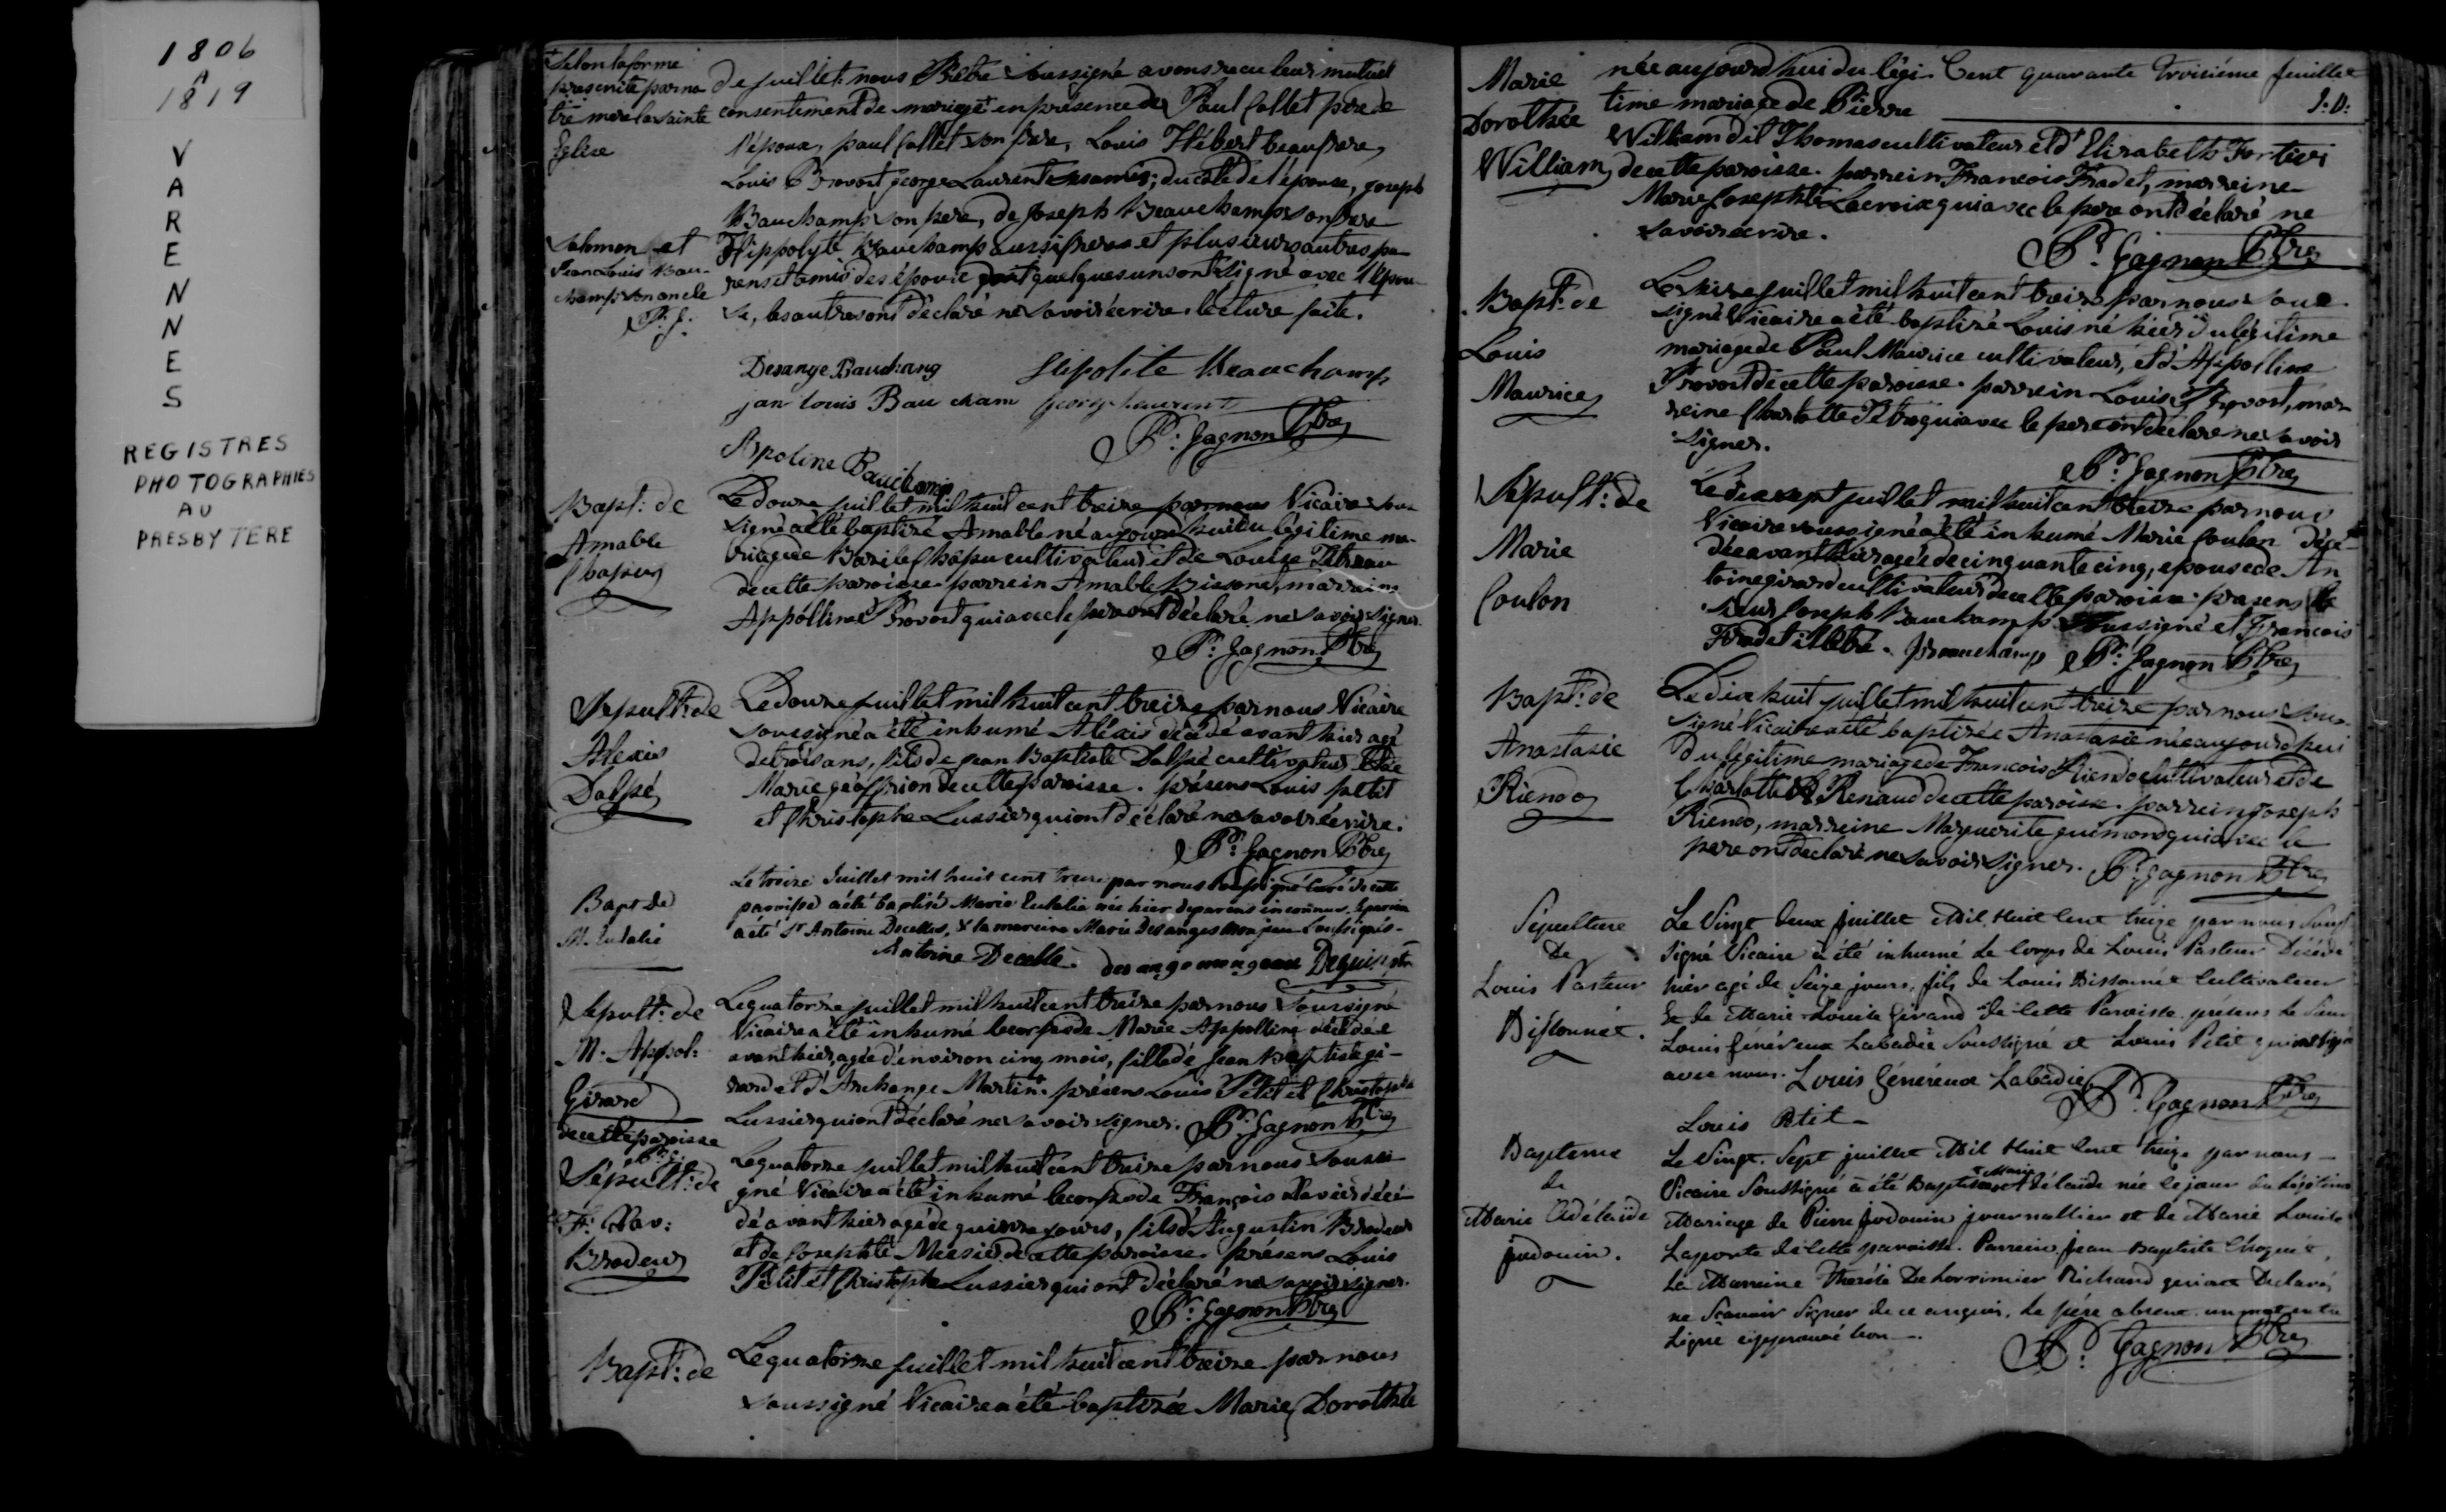 1806
A
1819
V
A
R
E
N
N
E
S
REGISTRES
PHOTOGRAPHIES
AU
PRESBYTERE
+ Selon la forme
prescrite par no
tre mere la sainte
Eglise
de juillet nous Pbtre soussigné avons recu leur mutuel
consentement de mariage + en présence de Paul Collet pere de
l'époux, paul Collet son frere, Louis Hébert beaufrere,
Louis Provost george Laurent ses amis; du coté de l'épouse, joseph
Bauchamp son pere, de joseph Beauchamp son frere
Hippolyte Bauchamp aussi frere et plusieurs autres pa
rens et amis des époux dont quelques uns ont signé avec l'épou
se, les autres ont déclaré ne savoir écrire. lecture faite.
Salomon et
Jean Louis Bau-
champ son oncle
P. G.
Desange Bauchamp Hipolite Beauchamp
jan louis Bau cham George Laurent
Pr: Gagnon Ptre
Apoline Bauchamp
Bapt: de
Amable
Chapu
Le douze juillet mil huit cent treize par nous Vicaire sous
signé a été baptizé Amable né aujourd'hui du légitime ma-
riage de Bazile Chapu cultivateur et de Louise Petrau
de cette paroisse. parrein Amable, marraine
Appolline Provost qui avec le pere ont déclaré ne savoir signer.
Pr: Gagnon Ptre
Sepult: de
Alexis
Dalpé
Le douze juillet mil huit cent treize par nous Vicaire
soussigné a été inhumé Aléxis décédé avant hier agé
de trois ans, fils de Jean Baptiste Dalpé cultivateur et de
Marie géoffrion de cette paroisse. présens Louis petit
et Christophe Lussier qui ont déclaré ne savoir écrire.
Pr: Gagnon Ptre
Bapt de
M. Eulalie
Le treize Juillet mil huit cent treize par nous soussigné Curé de cette
paroisse a été baptisée Marie Eulalie née hier de parens inconnus. le parein
a été Sr Antoine Decelles, & la mareine Marie Desanges Monjeau soussignés -
Antoine Decelle. des ange mongeau Deguise ptr
Sepult: de
M. Appol:
Girard
de cette paroisse
P. G.
Le quatorze juillet mil huit cent treize par nous Soussigné
Vicaire a été inhumé le corps de Marie Appolline décédée
avant hier, agée d'environ cinq mois, fille de Jean Baptiste gi-
rard et d'Archange Martin + présens Louis Petit et Christophe
Lussier qui ont déclaré ne savoir signer. Pr: Gagnon Ptre
Sépult: de
F: Xav:
Brodeur
Le quatorze juillet mil huit cent treize par nous soussi
gné Vicaire a été inhumé le corps de François Xavier décé
dé avant hier agé de quinze jours, fils d'Augustin Brodeur
et de Josephte Messier de cette paroisse. présens Louis
Petit et Christophe Lussier qui ont déclaré ne savoir signer.
Pr: Gagnon Ptre
Bapt: de
Le quatorze juillet mil huit cent treize par nous
soussigné Vicaire a été baptizée Marie Dorothée
Marie
Dorothée
William
Cent quarante troisième feuillet
J. D.
née aujourd'hui du légi-
time mariage de Pierre
William dit Thomas cultivateur et d'Elizabeth Fortier
de cette paroisse. parrein Francois Fradet, marreine
Marie Josephte Lacroix qui avec le pere ont déclaré ne
savoir écrire.
Pr. Gagnon Ptre
Bapt: de
Louis
Maurice
Le seize juillet mil huit cent treize par nous sous
signé Vicaire a été baptizé Louis né hier du légitime
mariage de Paul Maurice cultivateur, et d'Appolline
Provost de cette paroisse. parrein Louis Provost, mar
reine Charlotte qui avec le pere ont déclaré ne savoir
signer.
Pr. Gagnon Ptre
Sepult: de
Marie
Coulon
Le dix sept juillet mil huit cent treize par nous
Vicaire soussigné a été inhumé Marie Coulon décé-
dée avant hier agée de cinquante cinq, epouse de An
toine girard cultivateur de cette paroisse. presens le
sieur Joseph Bauchamp Soussigné et Francois
Fradet. J Beauchamp Pr. Gagnon Ptre
Bapt: de
Anastasie
Riendo
Le dix huit juillet mil huit cent treize par nous sous
signé Vicaire a été baptizée Anastasie née aujourd'hui
du légitime mariage de Francois Riendo cultivateur et de
Charlotte Renaud de cette paroisse. parrein Joseph
Riendo, marreine Marguerite guimond qui avec le
pere ont déclaré ne savoir signer. Pr. Gagnon Ptre
Sépulture
De
Louis Pasteur
Dissonnét.
Le Vingt deux juillet Mil Huit Cent treize par nous Sous
signé Vicaire a été inhumé le Corps de Louis Pasteur Décédé
hier agé de Seize jours, fils de Louis Dissonnét Cultivateur
Et de Marie Louise Girard de Cette Paroisse. présens le Sieur
Louis Généreux Labadie Soussigné et Louis Petit qui ont signé
avec nous. Louis Généreux Labadie
Pr. Gagnon Ptre
Louis Petit -
Bapteme
de
Marie Adélaïde
judouin.
Le Vingt Sept juillet Mil Huit Cent treize par nous -
Vicaire Soussigné a été Baptisée Marie Adélaïde née le jour du Légitime
Mariage de Pierre Judouin journallier et de Marie Louise
Laporte de Cette paroisse. Parrein Jean Baptiste Choquét,
La Marreine Therése Delorrimier Richard qui ont Déclaré,
ne Scavoir Signer de ce enquis, le pére absent. un mot entre
Ligne approuvé bon -.
Pr. Gagnon Ptre